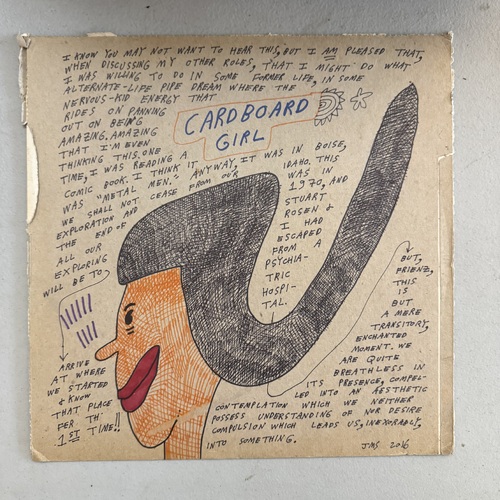 I KNOW YOU MAY NOT WANT TO HEAR THIS, BUT I AM PLEASED THAT,
WHEN DISCUSSING MY OTHER ROLES, THAT I MIGHT DO WHAT
I WAS WILLING TO DO IN SOME FORMER LIFE, IN SOME
ALTERNATE-LIFE PIPE DREAM WHERE THE
NERVOUS-KID ENERGY THAT
RIDES ON PANNING
OUT ON BEING
AMAZING. AMAZING
THAT I'M EVEN
THINKING THIS. ONE
TIME, I WAS READING A
COMIC BOOK. I THINK IT
WAS "METAL MEN."
CARDBOARD
GIRL
ANYWAY, IT WAS IN BOISE,
IDAHO. THIS
WAS IN
1970, AND
STUART
ROSEN &
I HAD
ESCAPED
FROM A
PSYCHIA-
TRIC
HOSPI-
TAL.
WE SHALL NOT CEASE FROM OUR
EXPLORATION AND
THE END OF
ALL OUR
EXPLORING
WILL BE TO
ARRIVE
AT WHERE
WE STARTED
& KNOW
THAT PLACE
FER TH'
1ST TIME!!
BUT,
FRIENZ,
THIS
IS
BUT
A MERE
TRANSITORY,
ENCHANTED
MOMENT. WE
ARE QUITE
BREATHLESS IN
ITS PRESENCE, COMPEL-
LED INTO AN AESTHETIC
CONTEMPLATION WHICH WE NEITHER
POSSESS UNDERSTANDING OF NOR DESIRE
COMPULSION WHICH LEADS US, INEXORABLY,
INTO SOMETHING.
JMS 2016